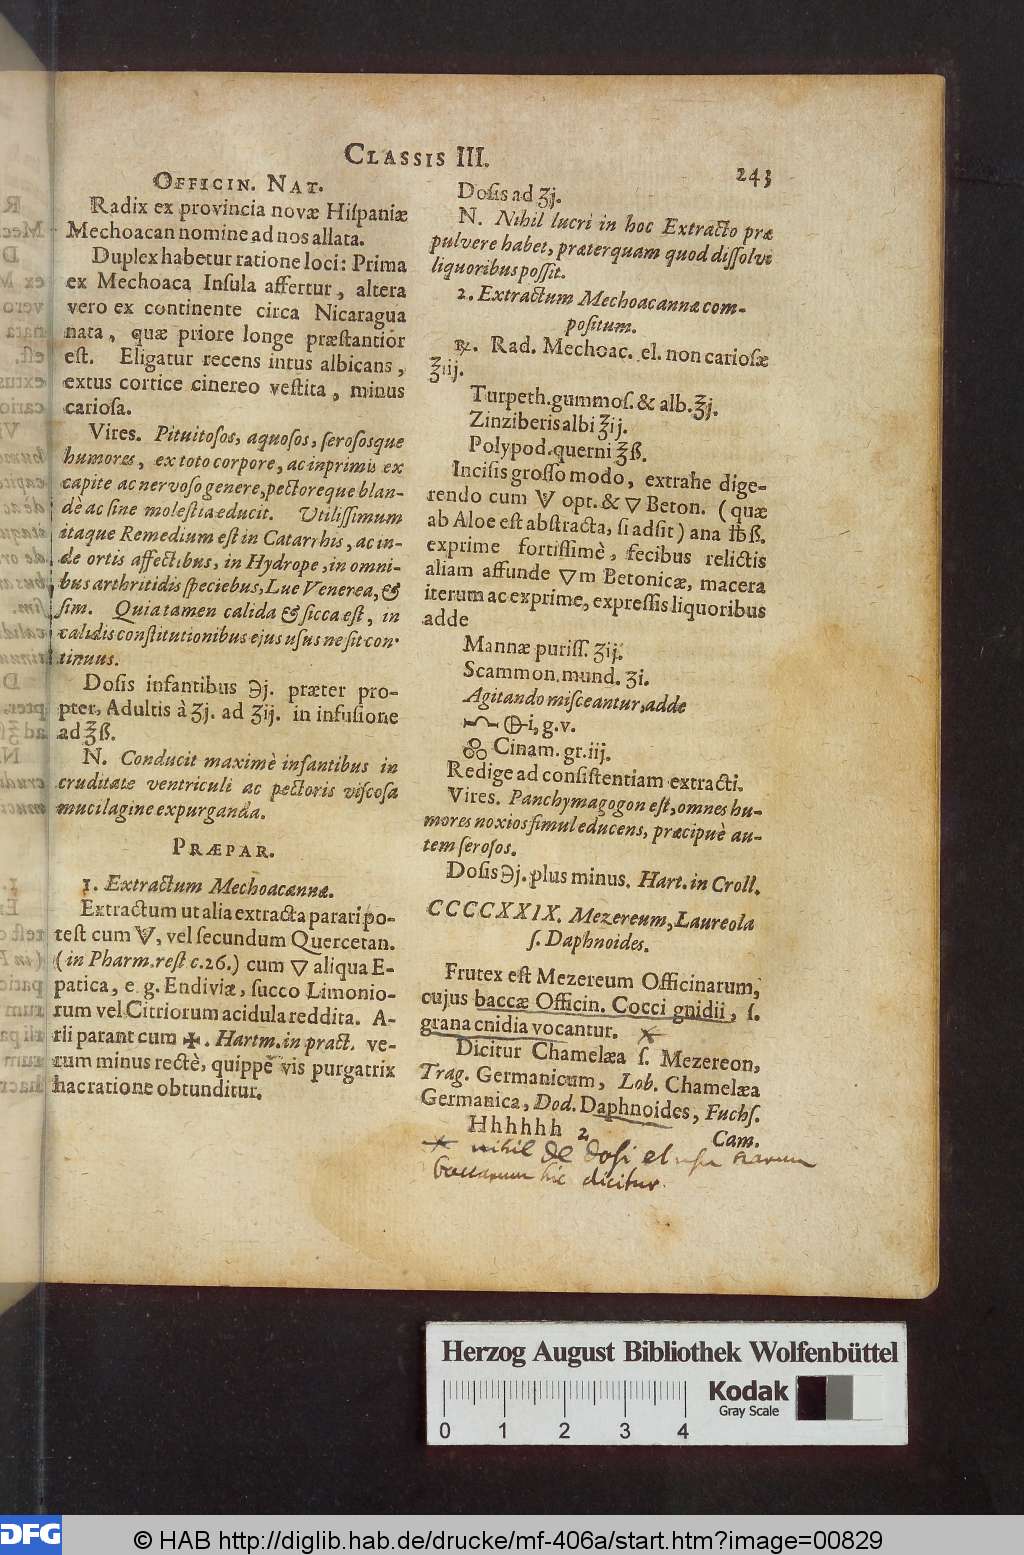 CLASSIS III.
243
OFFICIN. NAT.
Radix ex provincia novæ Hiſpaniæ
Mechoacan nomine ad nos allata.
Duplex habetur ratione loci: Prima
ex Mechoaca Inſula affertur, altera
vero ex continente circa Nicaragua
nata, quæ priore longe præſtantior
eſt. Eligatur recens intus albicans,
extus cortice cinereo veſtita, minus
carioſa.
Vires. Pituitoſos, aquoſos, ſeroſosque
humores, ex toto corpore, ac inprimis ex
capite ac nervoſo genere, pectoreque blan-
dè ac ſine moleſtia educit. Utiliſſimum
itaque Remedium eſt in Catarrhis, ac in-
de ortis affectibus, in Hydrope, in omni-
bus arthritidis ſpeciebus, Lue Venerea, &
ſim. Quia tamen calida & ſicca eſt, in
calidis conſtitutionibus ejus uſus ne ſit con-
tinuus.
Doſis infantibus ℈j. præter pro-
pter, Adultis à ʒj. ad ʒij. in infuſione
ad ℥ß.
N. Conducit maximè infantibus in
cruditate ventriculi ac pectoris viſcoſa
mucilagine expurganda.
PRÆPAR.
1. Extractum Mechoacannæ.
Extractum ut alia extracta parari po-
teſt cum V, vel ſecundum Quercetan.
(in Pharm. reſt c. 26.) cum ▽ aliqua E-
patica, e. g. Endiviæ, ſucco Limonio-
rum vel Citriorum acidula reddita. A-
rii parant cum ✠. Hartm. in pract. ve-
rum minus rectè, quippe vis purgatrix
hac ratione obtunditur.
Doſis ad ʒj.
N. Nihil lucri in hoc Extracto præ
pulvere habet, præterquam quod diſſolvi
liquoribus poſſit.
2. Extractum Mechoacannæ com-
poſitum.
℞. Rad. Mechoac. el. non carioſæ
℥iij.
Turpeth. gummoſ. & alb. ℥j.
Zinziberis albi ℥ij.
Polypod. querni ℥ß.
Inciſis groſſo modo, extrahe dige-
rendo cum V opt. & ▽ Beton. (quæ
ab Aloe eſt abſtracta, ſi adſit) ana ℔ß.
exprime fortiſſimè, fecibus relictis
aliam affunde ▽m Betonicæ, macera
iterum ac exprime, expreſſis liquoribus
adde
Mannæ puriſſ. ʒij.
Scammon. mund. ʒi.
Agitando miſceantur, adde
i, g. v.
Cinam. gr. iij.
Redige ad conſiſtentiam extracti.
Vires. Panchymagogon eſt, omnes hu-
mores noxios ſimul educens, præcipuè au-
tem ſeroſos.
Doſis ℈j. plus minus. Hart. in Croll.
CCCCXXIX. Mezereum, Laureola
ſ. Daphnoides.
Frutex eſt Mezereum Officinarum,
cujus baccæ Officin. Cocci gnidii, ſ.
grana cnidia vocantur.
Dicitur Chamelæa ſ. Mezereon,
Trag. Germanicum, Lob. Chamelæa
Germanica, Dod. Daphnoides, Fuchſ.
Hhhhhh 2
Cam.
nihil de dosi et usu harum
baccarum hic dicitur.
Herzog August Bibliothek Wolfenbüttel
Kodak
Gray Scale
0 1 2 3 4
DFG
© HAB http://diglib.hab.de/drucke/mf-406a/start.htm?image=00829